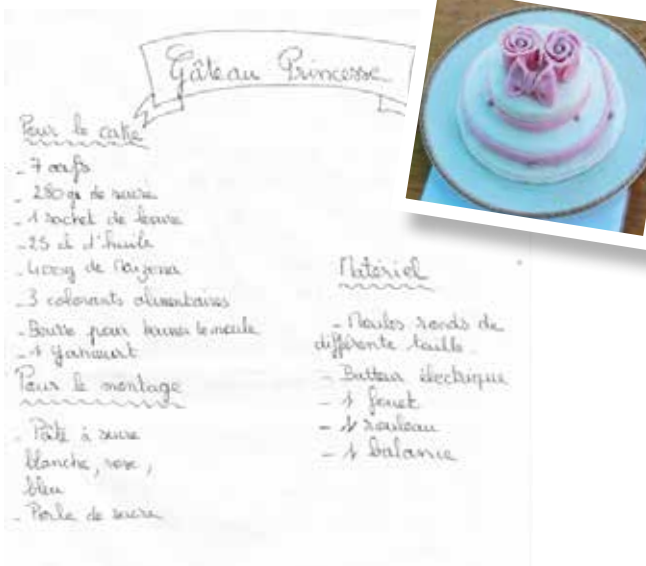 Gâteau Princesse
Pour le cake
- 7 œufs
- 280 gr de sucre
- 1 sachet de levure
- 25 cl d'huile
- 400g de Maïzena
- 3 colorants alimentaires
- Beurre pour le moule
- 1 yahourt
Pour le montage
- Pâte à sucre
blanche, rose,
bleu
- Perle de sucre
Matériel
- Moules ronds de
différente taille
- Batteur électrique
- 1 fouet
- 1 rouleau
- 1 balance